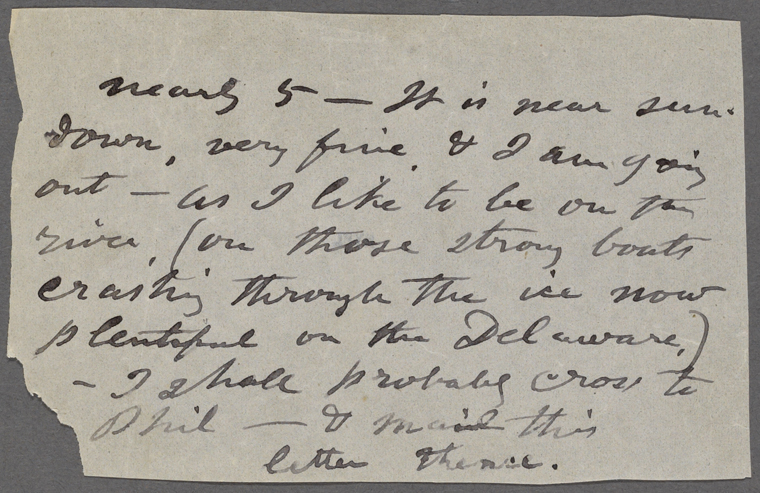 nearly 5 — It is near sun-
down, very fine, & I am going
out — as I like to be on the
river, (on those strong boats
crashing through the ice now
plentiful on the Delaware,)
— I shall probably cross to
Phil — & mail this
letter thence.